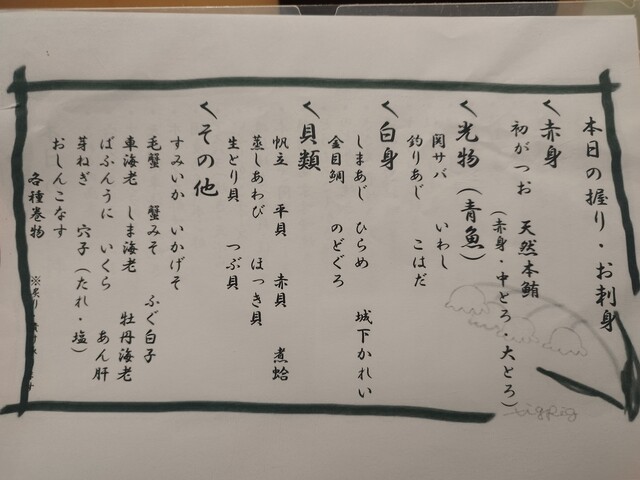 本日の握り・お刺身
く赤身
初がつお 天然本鮪
(赤身・中とろ・大とろ)
く光物(青魚)
関サバ いわし
釣りあじ こはだ
く白身
しまあじ ひらめ 城下かれい
金目鯛 のどぐろ
く貝類
帆立 平貝 赤貝 煮蛤
蒸しあわび ほっき貝
生とり貝 つぶ貝
くその他
すみいか いかげそ
毛蟹 蟹みそ ふぐ白子
車海老 しま海老 牡丹海老
ばふんうに いくら あん肝
芽ねぎ 穴子(たれ・塩)
おしんこなす
各種巻物